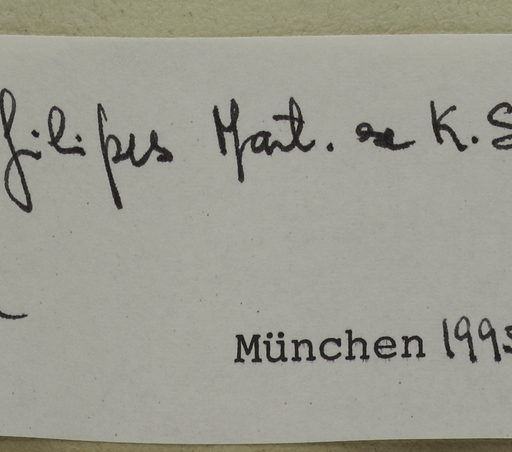 filipes Mart. ex K. S
München 1995